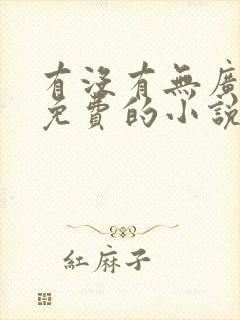 有沒有無廣
免費的小說
紅麻子